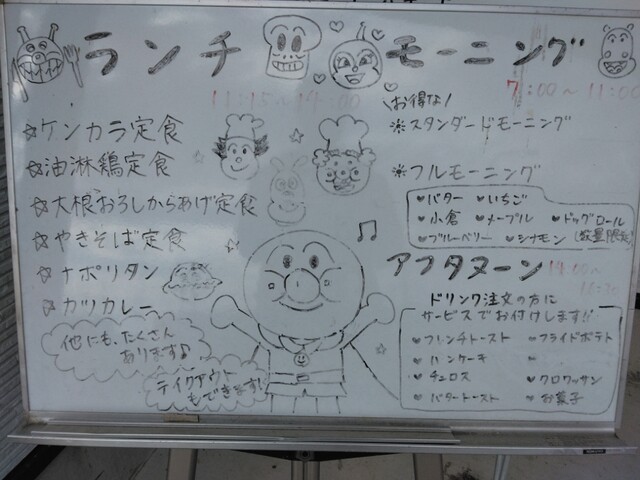 ランチ
11:15~14:00
☆ケンカラ定食
☆油淋鶏定食
☆大根おろしからあげ定食
☆やきそば定食
☆ナポリタン
☆カツカレー
他にも、たくさん
あります♪
テイクアウト
もできます!
モーニング
7:00~11:00
\お得な/
※スタンダードモーニング
※フルモーニング
♥バター ♥いちご
♥小倉 ♥メープル ♥ドッグロール
♥ブルーベリー ♥シナモン (数量限定)
アフタヌーン
14:00~
ドリンク注文の方に
サービスでお付けします!!
♥フレンチトースト ♥フライドポテト
♥パンケーキ
♥チュロス ♥クロワッサン
♥バタートースト ♥お菓子